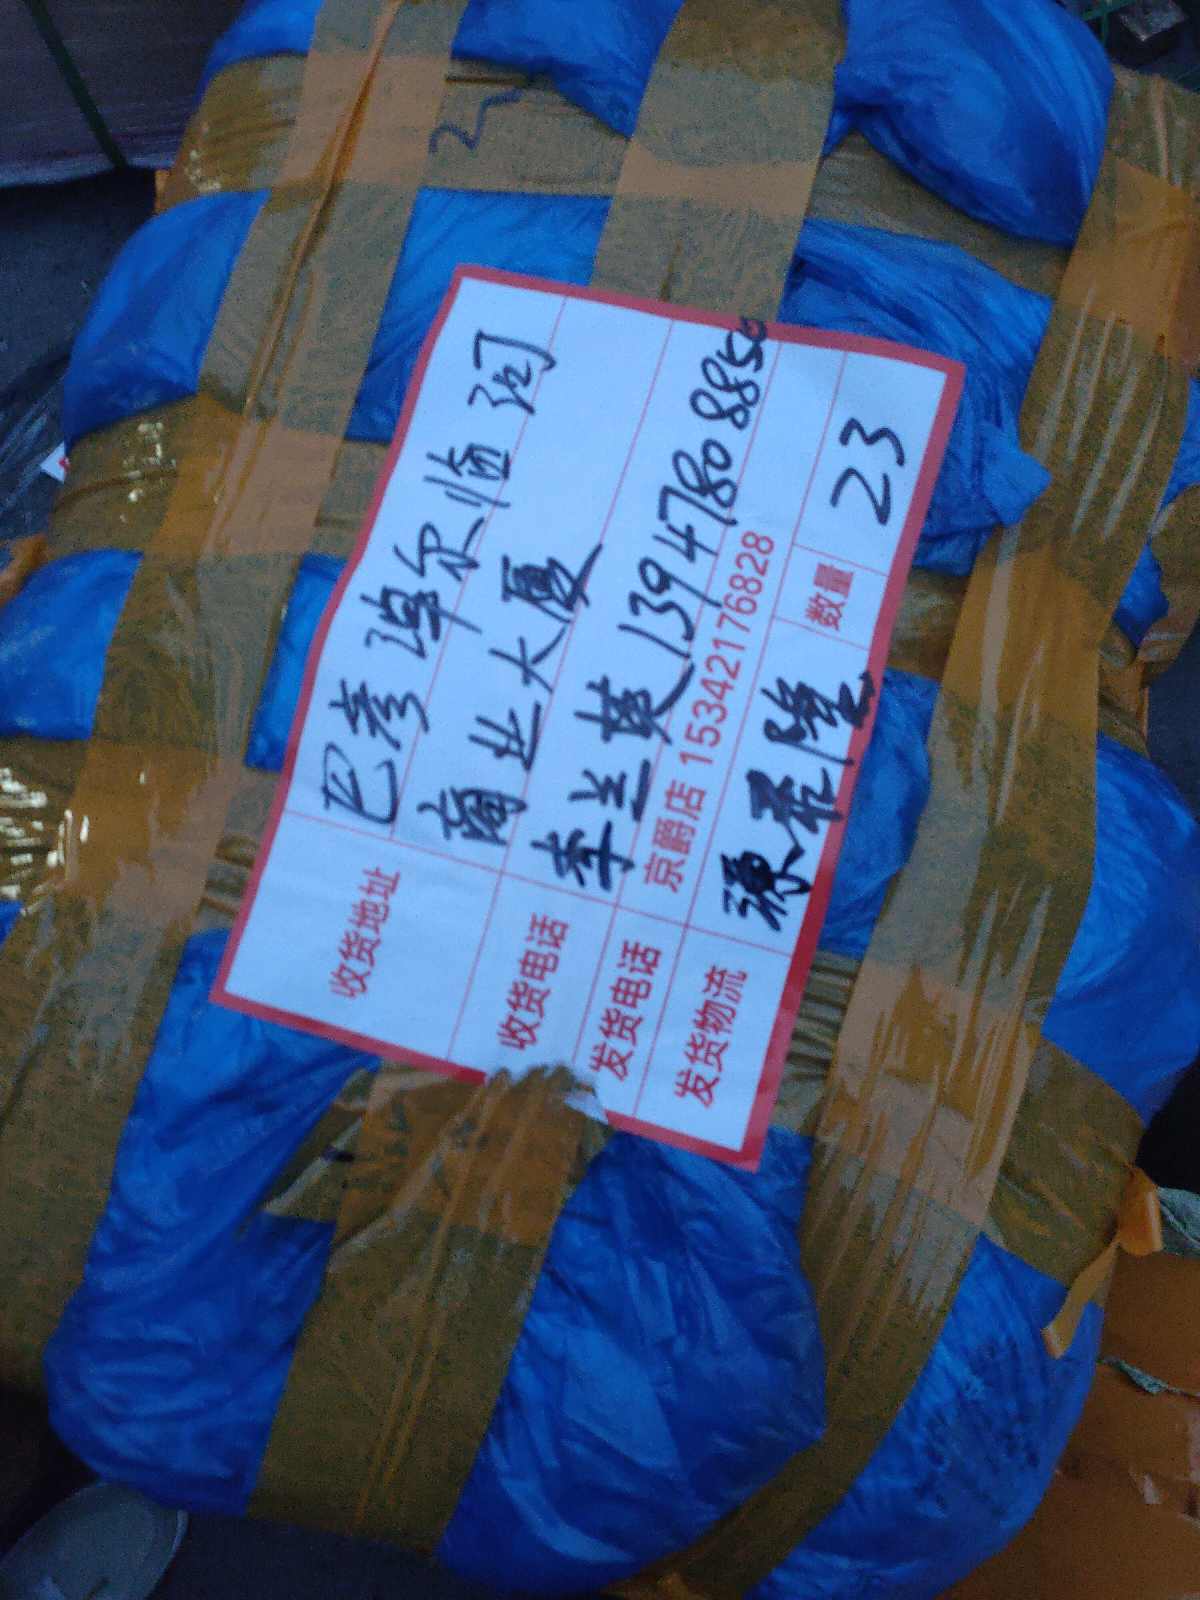 收货地址 巴彦淖尔临河
商业大厦
收货电话 李兰英13947808850
发货电话 京爵店 15342176828
发货物流 源泰隆 数量 23